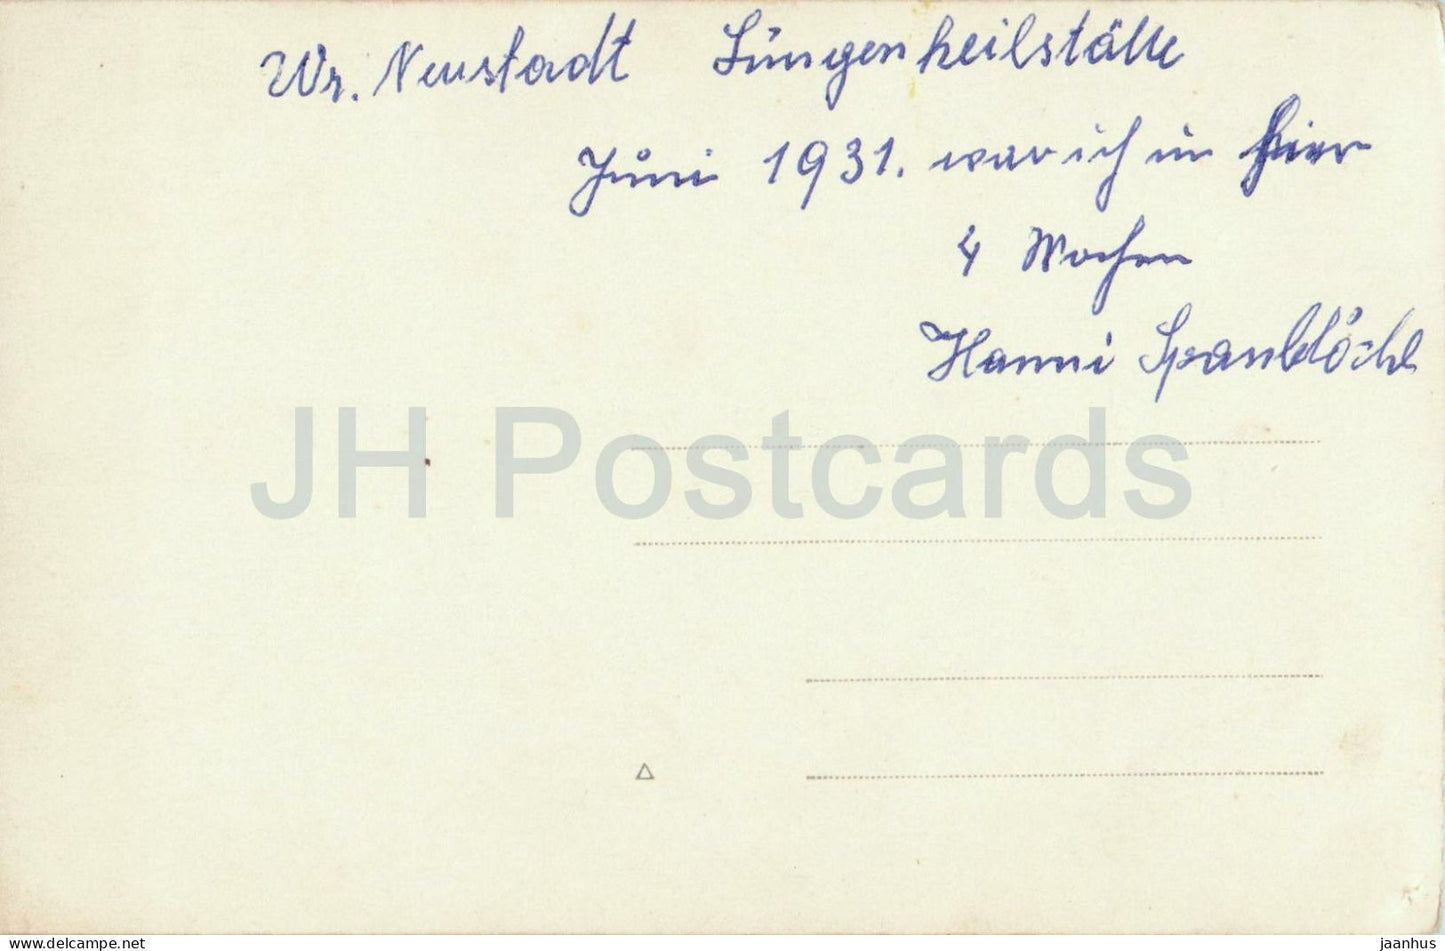 Wr. Neustadt Lungenheilstätte
Juni 1931. war ich in hier
4 Wochen
Hanni
JH Postcards
www.delcampe.net
jaanhus